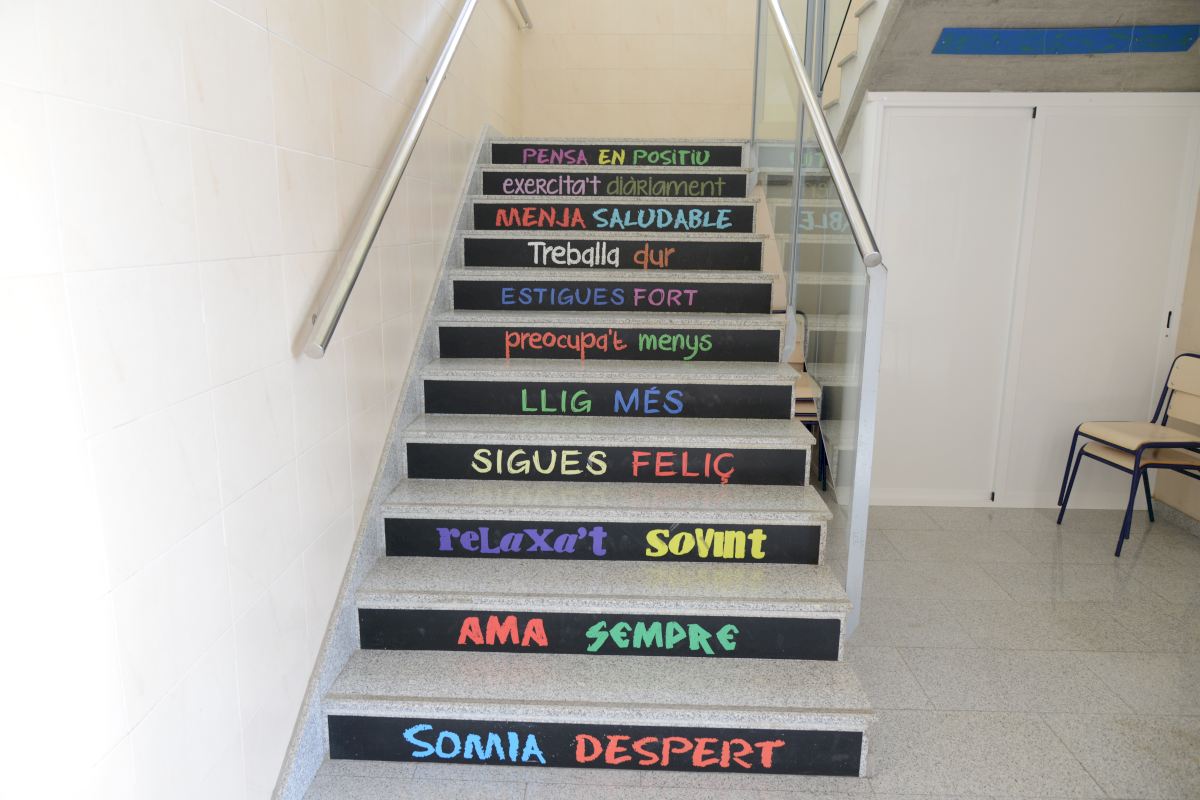 PENSA EN POSITIU
exercita't diàriament
MENJA SALUDABLE
Treballa dur
ESTIGUES FORT
preocupa't menys
LLIG MÉS
SIGUES FELIÇ
reLaxa't sovint
AMA SEMPRE
SOMIA DESPERT